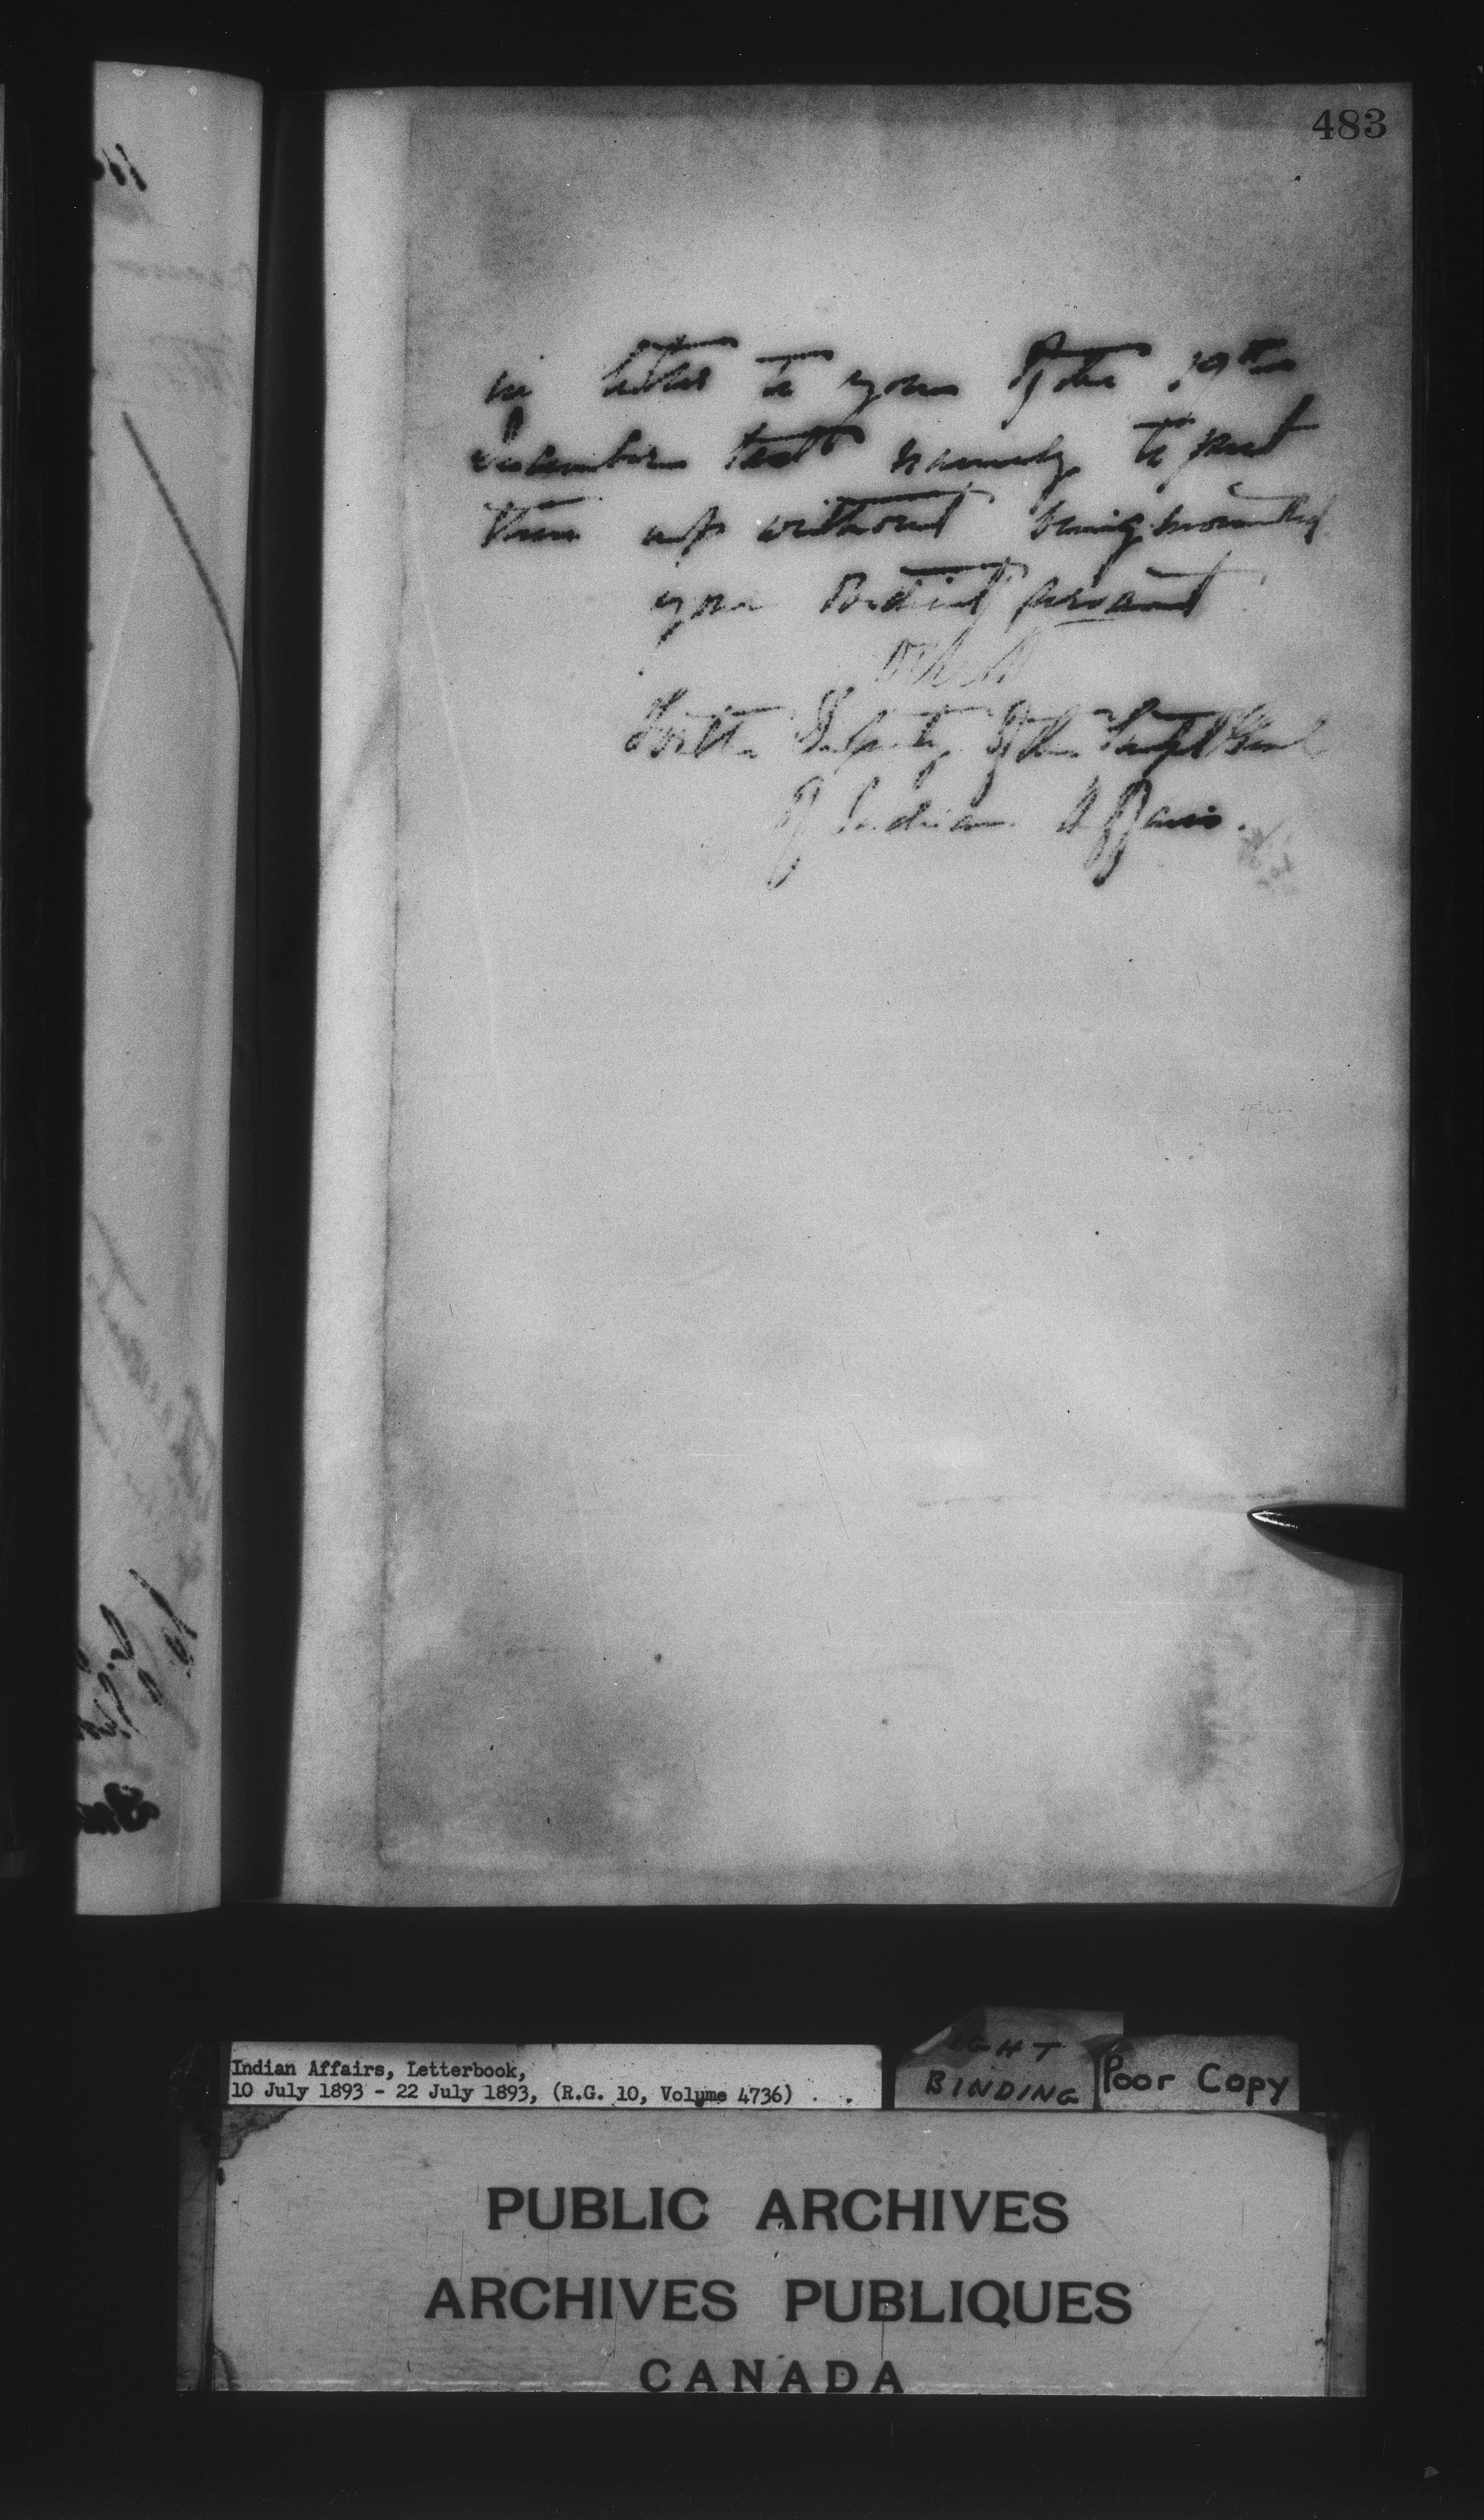 483
in letter to you of the 19th
December last namely to put
them up without being mounted
your obedient servant
For the Deputy of the Supt Genl
of Indian Affairs.
Indian Affairs, Letterbook,
10 July 1893 - 22 July 1893, (R.G. 10, Volume 4736)
IGHT
BINDING
Poor Copy
PUBLIC ARCHIVES
ARCHIVES PUBLIQUES
CANADA